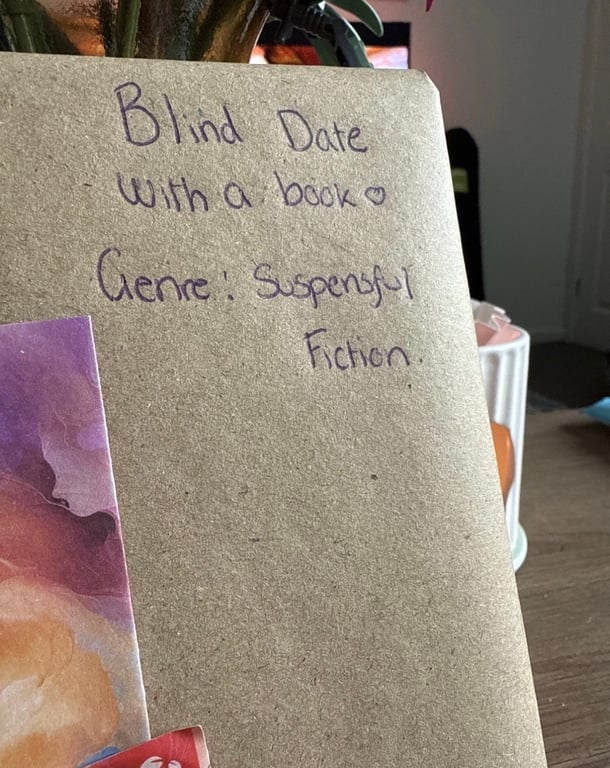 Blind Date
With a book ♡
Genre: Suspensful
Fiction.